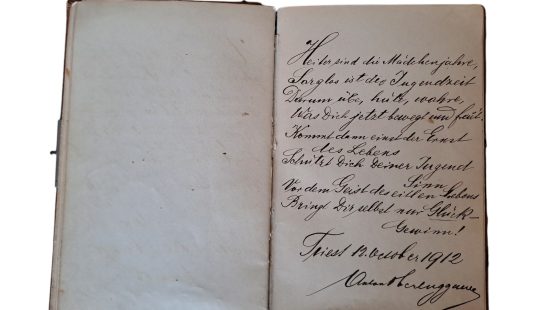 Heiter sind die Mädchenjahre,
Sorglos ist die Jugendzeit
Darum übe, hüte, wahre,
Was Dich jetzt bewegt und freut.
Kommt dann einst der Ernst
des Lebens
Schützt Dich Deiner Jugend
Sinn
Vor dem Geist des eitlen Lebens
Bringt Dir selbst nur Glück-
Gewinn!
Triest 12. October 1912
Anton